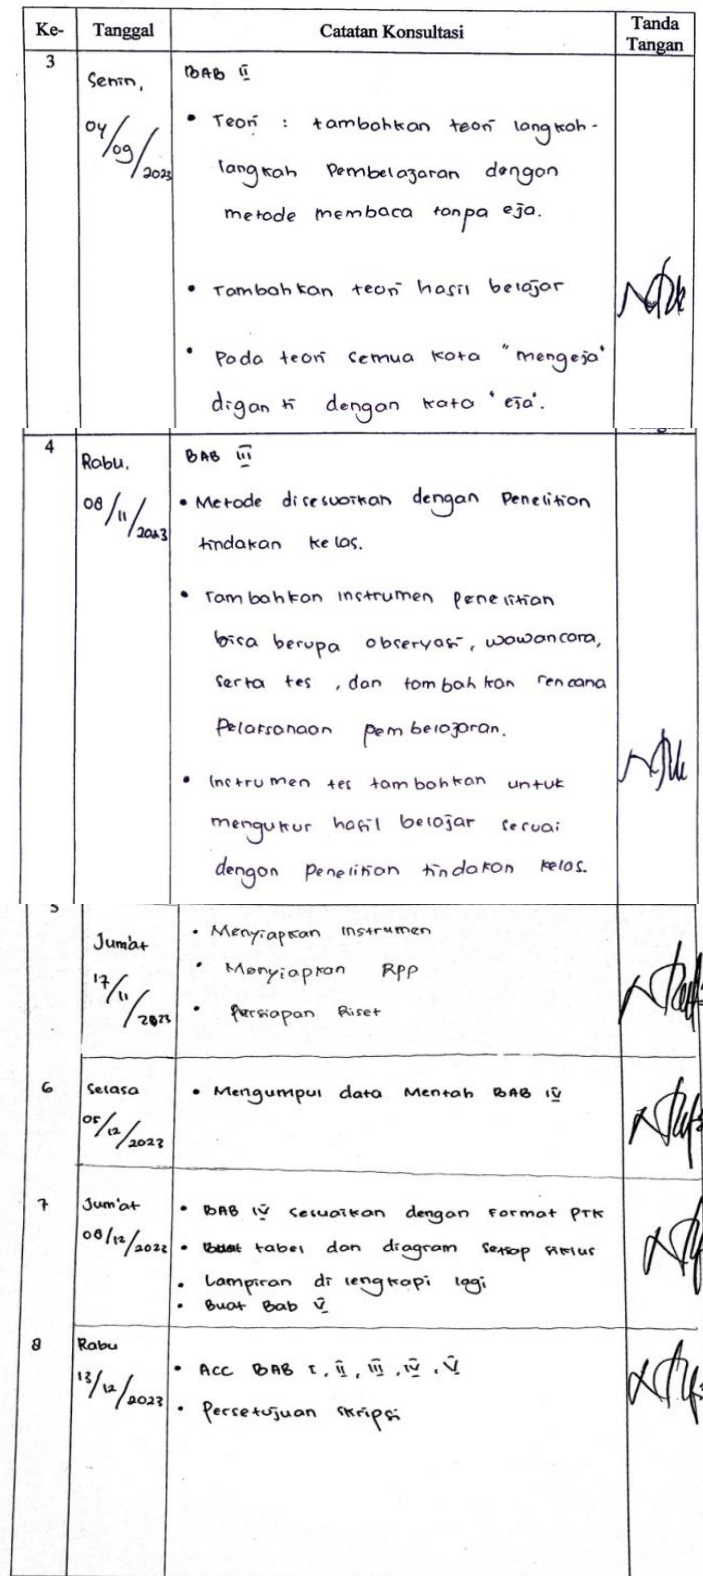 Ke- Tanggal Catatan Konsultasi Tanda Tangan
3
Senin,
04/09/2023
BAB II
• Teori : tambahkan teori langkah-
langkah Pembelajaran dengan
metode membaca tanpa eja.
• Tambahkan teori hasil belajar
• Pada teori semua kata "mengeja"
diganti dengan kata "eja".
4
Rabu.
08/11/2023
BAB III
• Metode disesuaikan dengan Penelitian
tindakan kelas.
• Tambahkan instrumen penelitian
bisa berupa observasi, wawancara,
serta tes, dan tambahkan rencana
Pelaksanaan pembelajaran.
• Instrumen tes tambahkan untuk
mengukur hasil belajar sesuai
dengan penelitian tindakan kelas.
5
Jum'at
17/11/2023
• Menyiapkan instrumen
• Menyiapkan RPP
• Persiapan Riset
6
Selasa
05/12/2023
• Mengumpul data Mentah BAB IV
7
Jum'at
08/12/2023
• BAB IV sesuaikan dengan format PTK
• Buat tabel dan diagram setiap siklus
• Lampiran di lengkapi lagi
• Buat Bab V
8
Rabu
13/12/2023
• Acc BAB I, II, III, IV, V
• Persetujuan skripsi